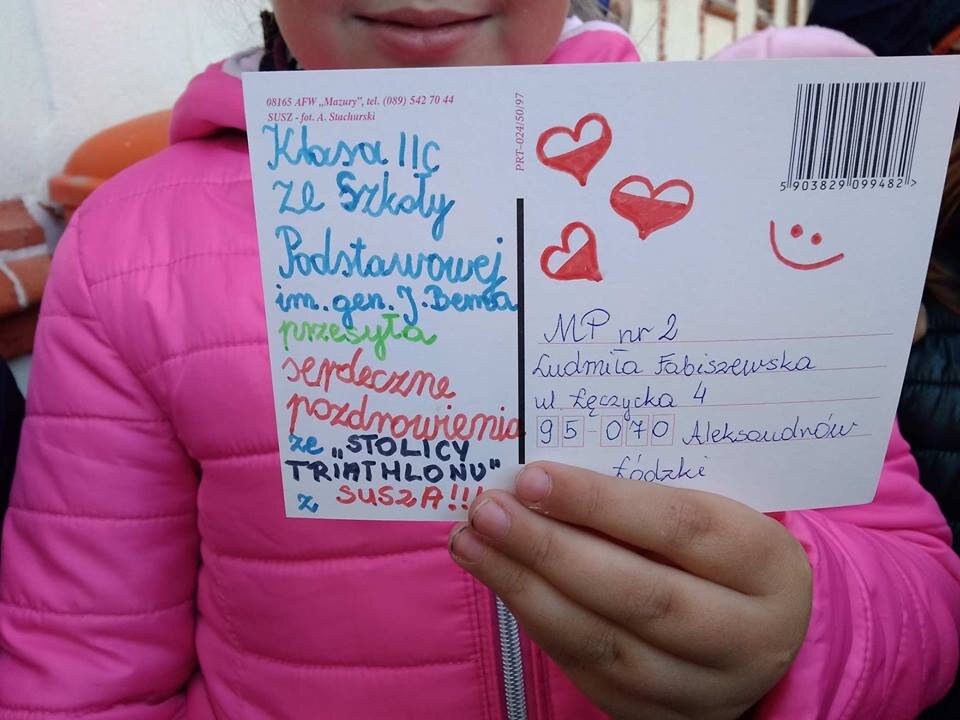 08165 AFW „Mazury”, tel. (089) 542 70 44
SUSZ - fot. A. Stachurski
Klasa IIc
ze Szkoły
Podstawowej
im. gen. J. Bema
przesyła
serdeczne
pozdrowienia
ze „STOLICY
TRIATHLONU"
z SUSZA!!!
PRT-024/50/97
5 903829 099482 >
MP nr 2
Ludmiła Fabiszewska
ul. Łęczycka 4
95-070 Aleksandrów
Łódzki